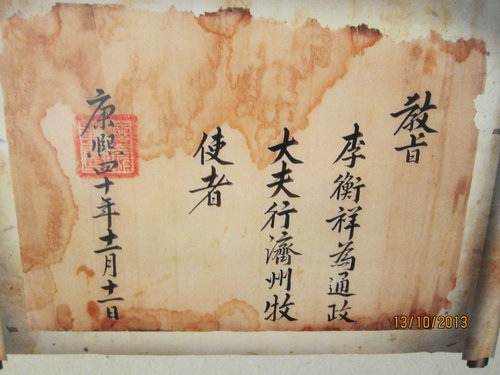 教旨
李衡祥為通政
大夫行濟州牧
使者
康熙四十年十一月十一日
13/10/2013